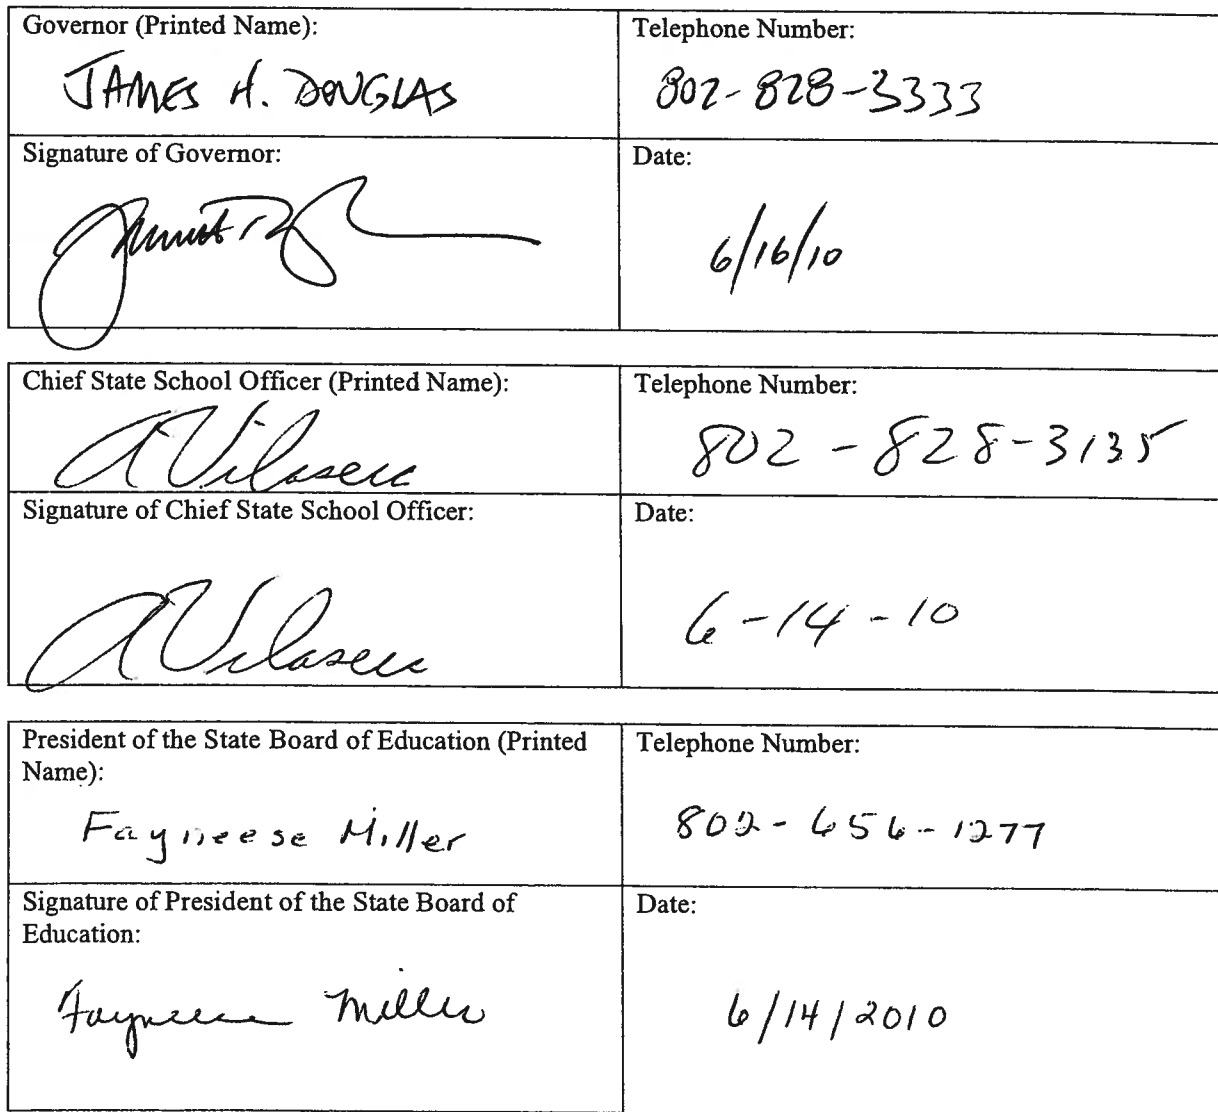 Governor (Printed Name):
JAMES H. DOUGLAS
Telephone Number:
802-828-3333
Signature of Governor:
Date:
6/16/10
Chief State School Officer (Printed Name):
A Vilaseca
Telephone Number:
802-828-3135
Signature of Chief State School Officer:
A Vilaseca
Date:
6-14-10
President of the State Board of Education (Printed
Name):
Fayneese Miller
Telephone Number:
802-656-1277
Signature of President of the State Board of
Education:
Fayneese Miller
Date:
6/14/2010